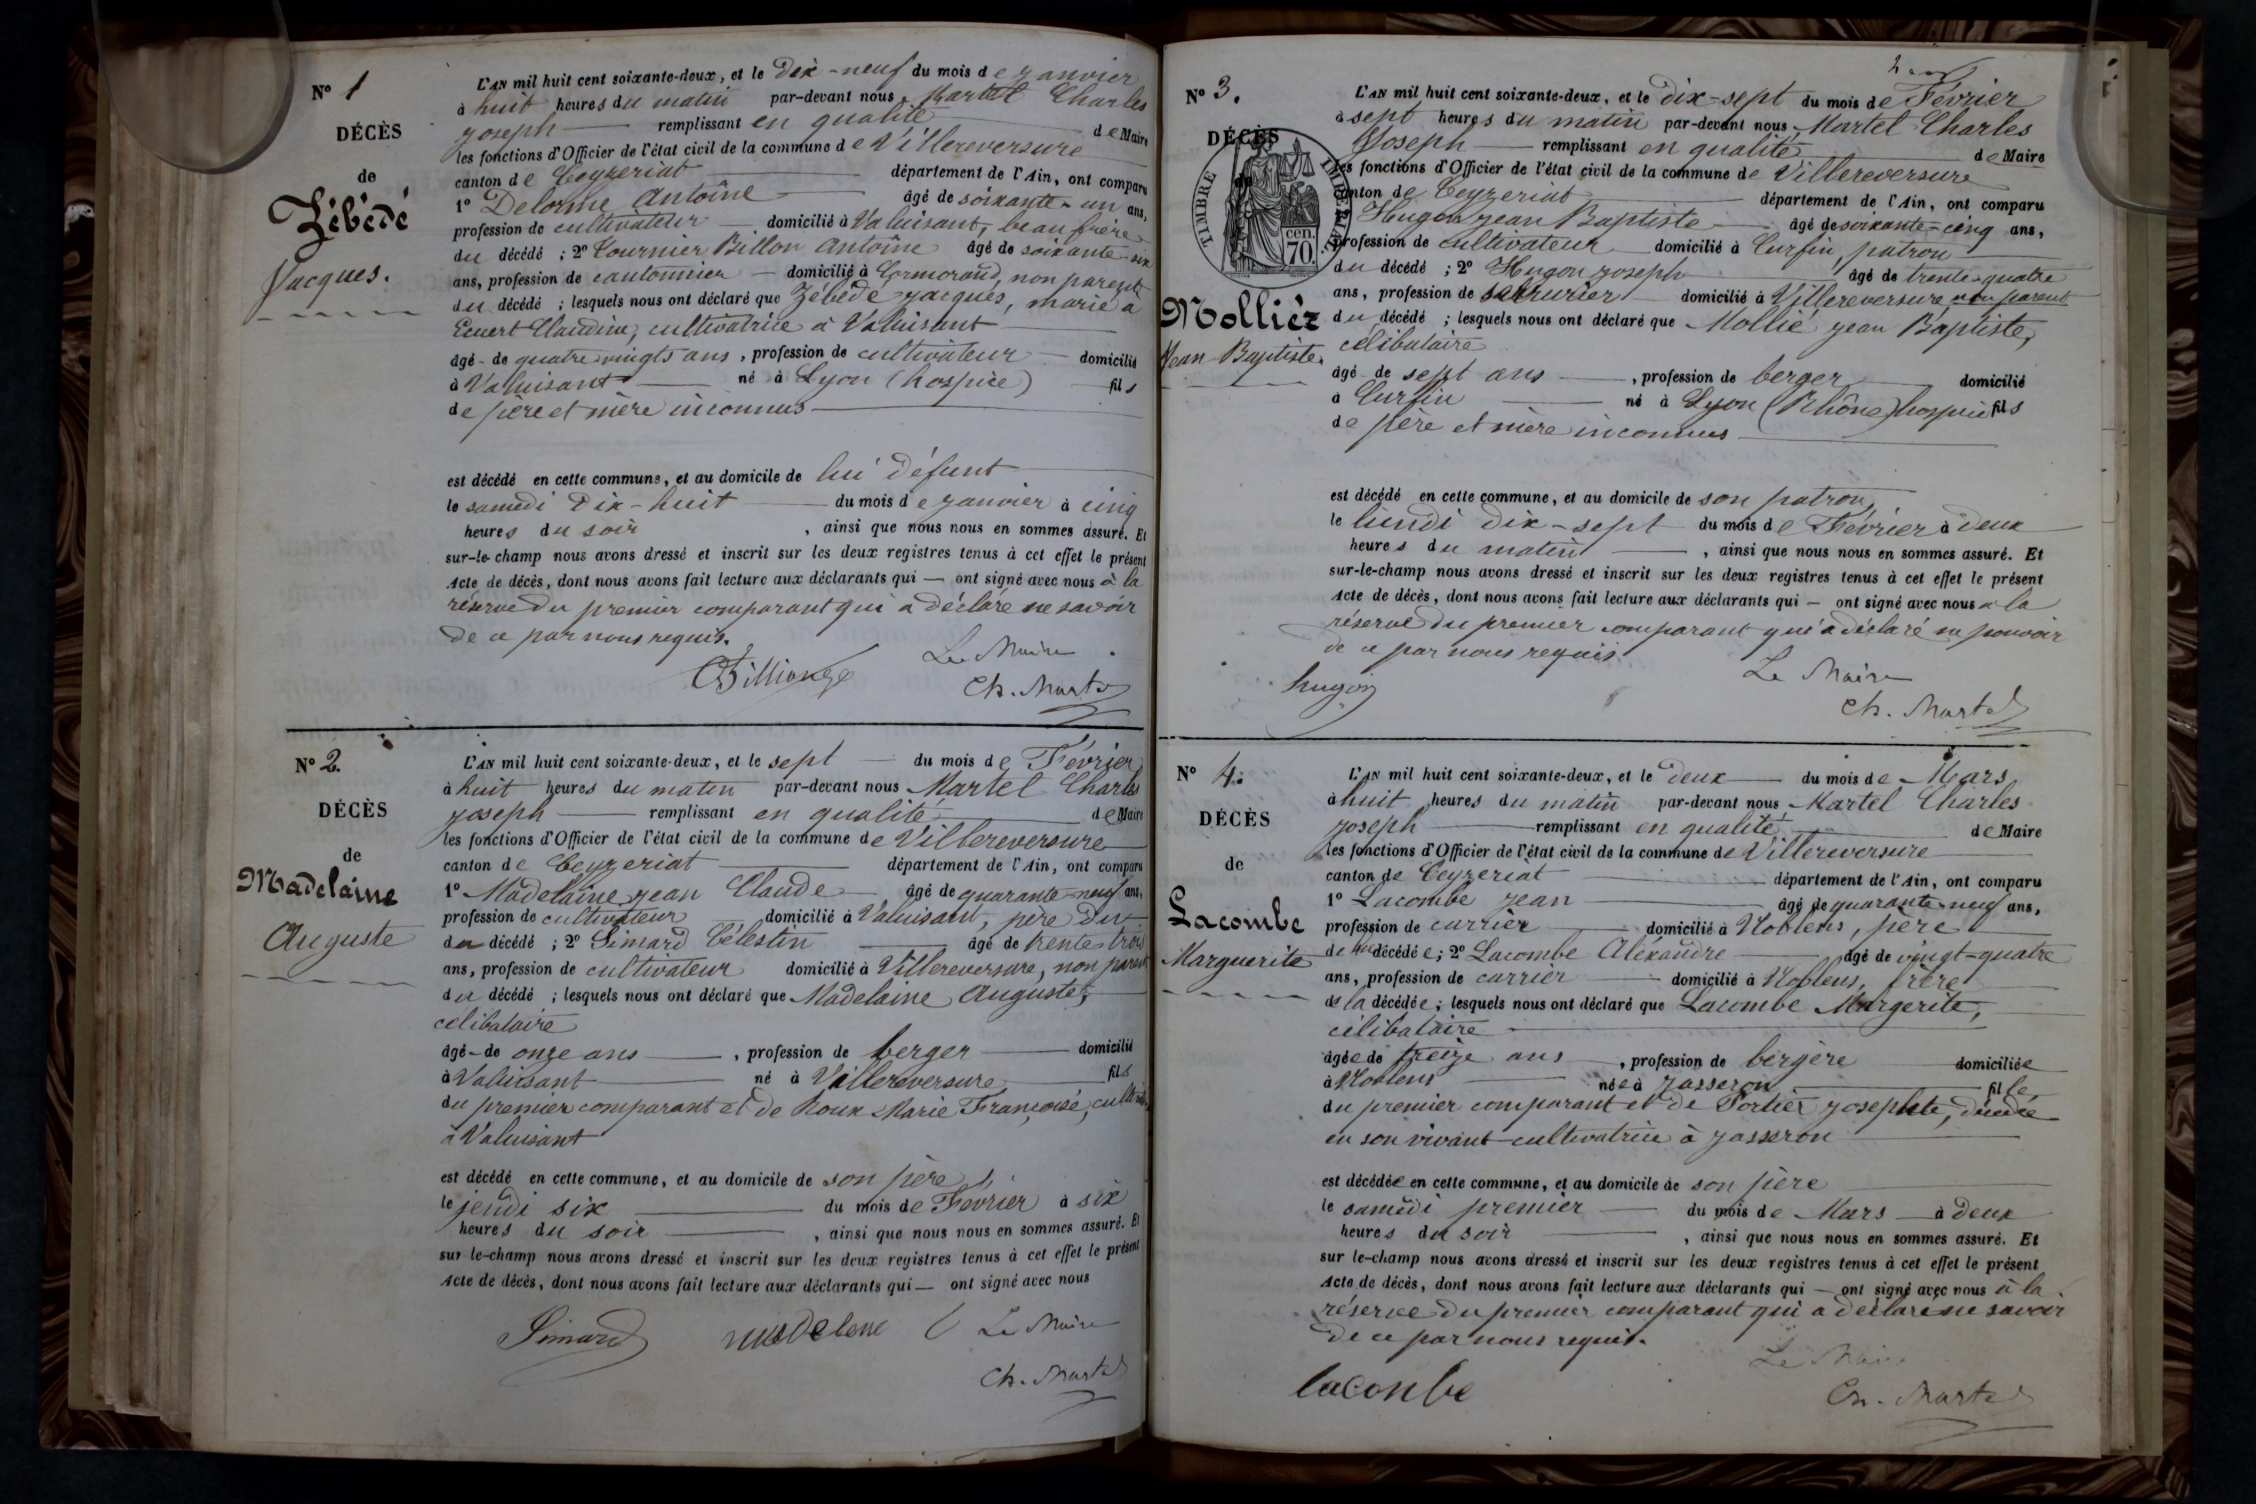 N° 1
DÉCÈS
de
Zébédé
Jacques.
L'AN mil huit cent soixante-deux, et le Dix-neuf du mois de Janvier
à huit heures du matin par-devant nous Martel Charles
Joseph remplissant en qualité de Maire
les fonctions d'Officier de l'état civil de la commune de Villereversure
canton de Ceyzeriat département de l'Ain, ont comparu
1° Delorme Antoine âgé de soixante-un ans,
profession de cultivateur domicilié à Valuisant, beau frère
du décédé ; 2° Tournier Billon Antoine âgé de soixante-six
ans, profession de cantonnier domicilié à Cormorand, non parent
du décédé ; lesquels nous ont déclaré que Zébédé Jacques, marié à
Claudine, cultivatrice à Valuisant
âgé de quatre vingts ans, profession de cultivateur domicilié
à Valuisant né à Lyon (hospice) fils
de père et mère inconnus
est décédé en cette commune, et au domicile de lui défunt
le samedi Dix-huit du mois de Janvier à cinq
heures du soir, ainsi que nous nous en sommes assuré. Et
sur-le-champ nous avons dressé et inscrit sur les deux registres tenus à cet effet le présent
Acte de décès, dont nous avons fait lecture aux déclarants qui — ont signé avec nous à la
réserve du premier comparant qui a déclaré ne savoir
de ce par nous requis.
Le Maire
Ch. Martel
N° 2.
DÉCÈS
de
Madelaine
Auguste
L'AN mil huit cent soixante-deux, et le sept du mois de Février
à huit heures du matin par-devant nous Martel Charles
Joseph remplissant en qualité de Maire
les fonctions d'Officier de l'état civil de la commune de Villereversure
canton de Ceyzeriat département de l'Ain, ont comparu
1° Madelaine Jean Claude âgé de quarante-neuf ans,
profession de cultivateur domicilié à Valuisant, père du
du décédé ; 2° Simard Célestin âgé de trente trois
ans, profession de cultivateur domicilié à Villereversure, non parent
du décédé ; lesquels nous ont déclaré que Madelaine Auguste,
célibataire
âgé de onze ans, profession de berger domicilié
à Valuisant né à Villereversure fils
du premier comparant et de Roux Marie Françoise, cultivatrice
à Valuisant
est décédé en cette commune, et au domicile de son père,
le jeudi six du mois de Février à six
heures du soir, ainsi que nous nous en sommes assuré. Et
sur le-champ nous avons dressé et inscrit sur les deux registres tenus à cet effet le présent
Acte de décès, dont nous avons fait lecture aux déclarants qui — ont signé avec nous
Simard madelene Le Maire
Ch. Martel
N° 3.
DÉCÈS
de
TIMBRE IMPÉRIAL
70 cen.
Mollier
Jean Baptiste.
L'AN mil huit cent soixante-deux, et le dix-sept du mois de Février
à sept heures du matin par-devant nous Martel Charles
Joseph remplissant en qualité de Maire
les fonctions d'Officier de l'état civil de la commune de Villereversure
canton de Ceyzeriat département de l'Ain, ont comparu
Hugon Jean Baptiste âgé de soixante-cinq ans,
profession de cultivateur domicilié à Curfin, patron
du décédé ; 2° Hugon Joseph âgé de trente-quatre
ans, profession de serrurier domicilié à Villereversure, non parent
du décédé ; lesquels nous ont déclaré que Mollié Jean Baptiste,
célibataire
âgé de sept ans, profession de berger domicilié
à Curfin né à Lyon (Rhône) hospice fils
de père et mère inconnues
est décédé en cette commune, et au domicile de son patron,
le lundi dix-sept du mois de Février à deux
heures du matin, ainsi que nous nous en sommes assuré. Et
sur-le-champ nous avons dressé et inscrit sur les deux registres tenus à cet effet le présent
Acte de décès, dont nous avons fait lecture aux déclarants qui — ont signé avec nous à la
réserve du premier comparant qui a déclaré ne pouvoir
de ce par nous requis.
hugon
Le Maire
Ch. Martel
N° 4.
DÉCÈS
de
Lacombe
Marguerite
L'AN mil huit cent soixante-deux, et le deux du mois de Mars
à huit heures du matin par-devant nous Martel Charles
Joseph remplissant en qualité de Maire
les fonctions d'Officier de l'état civil de la commune de Villereversure
canton de Ceyzeriat département de l'Ain, ont comparu
1° Lacombe Jean âgé de quarante-neuf ans,
profession de carrier domicilié à Noblens, père
de la décédée ; 2° Lacombe Aléxandre âgé de vingt-quatre
ans, profession de carrier domicilié à Noblens, frère
de la décédée ; lesquels nous ont déclaré que Lacombe Margerite,
célibataire
âgée de treize ans, profession de bergère domiciliée
à Noblens née à Jasseron fille
du premier comparant et de Portier Josephte, décédée
en son vivant cultivatrice à Jasseron
est décédée en cette commune, et au domicile de son père
le samedi premier du mois de Mars à deux
heures du soir, ainsi que nous nous en sommes assuré. Et
sur le-champ nous avons dressé et inscrit sur les deux registres tenus à cet effet le présent
Acte de décès, dont nous avons fait lecture aux déclarants qui — ont signé avec nous à la
réserve du premier comparant qui a déclaré ne savoir
de ce par nous requis.
Le Maire
lacombe
Ch. Martel